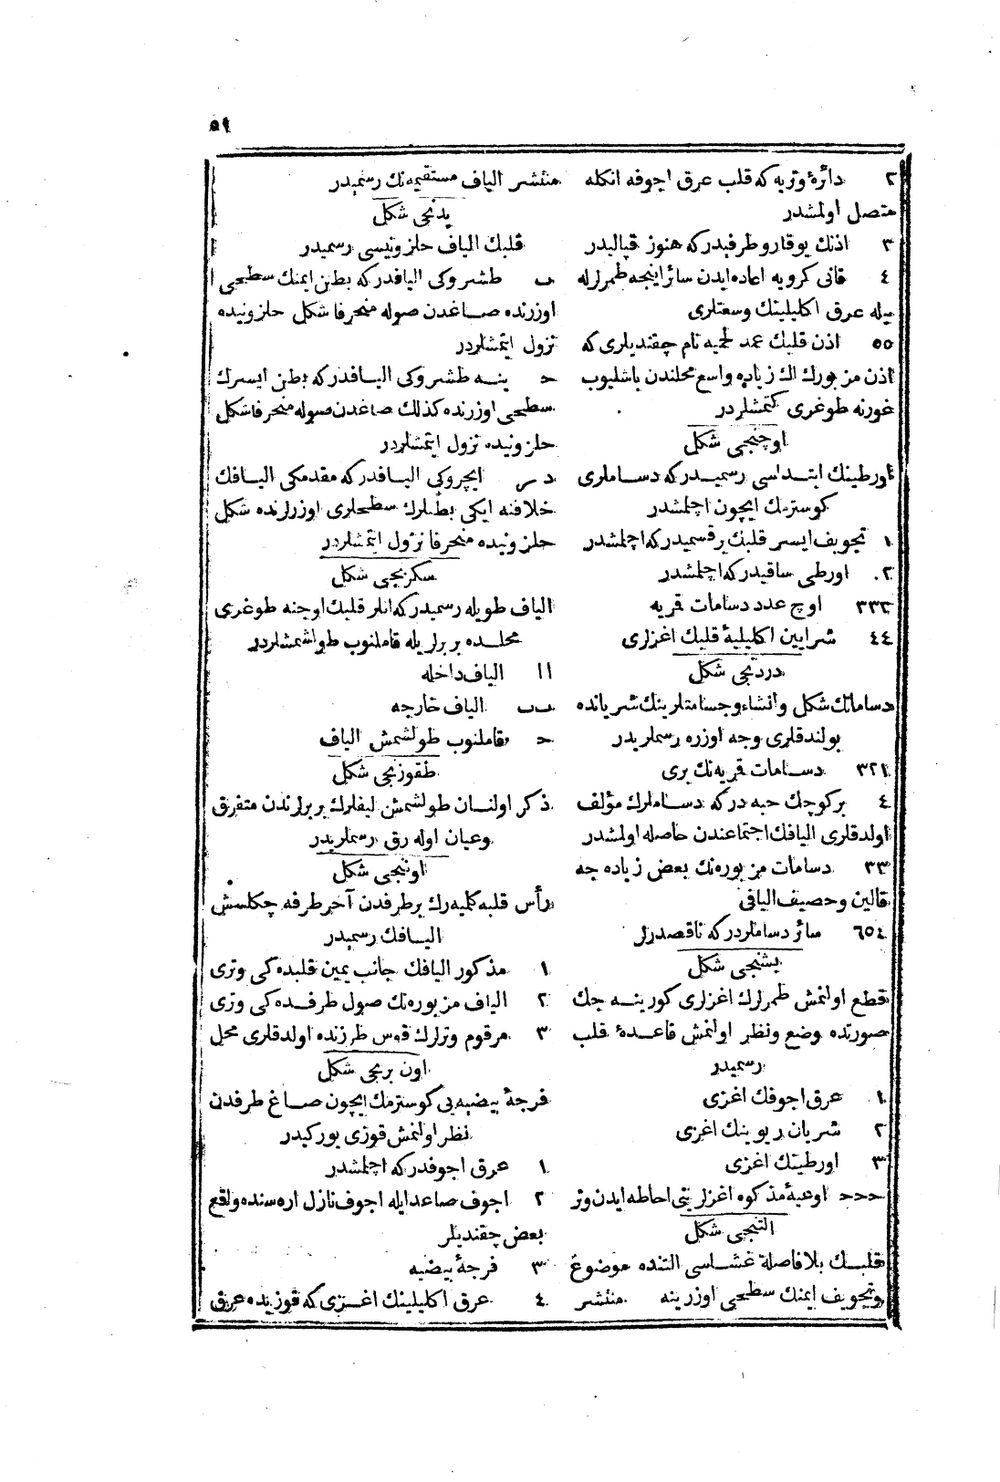 ٥٩
٢ دائرهٔ وتریه که قلب عرق اجوفه انکله
متصل اولمشدر
٣ اذنك یوقارو طرفیدرکه هنوز قپالیدر
٤ قانی کرویه اعاده ایدن سائر اینجه طمرلرله
یله عرق اکلیلینك وسعتلری
٥٥ اذن قلبك عمد لحمیه نام چقندیلری که
اذن مزبورك اك زیاده واسع محلندن باشلیوب
غورنه طوغری کتمشلردر
اوچنجی شکل
اورطینك ابتداسی رسمیدرکه دساملری
کوسترمك ایچون اچلمشدر
١ تجویف ایسر قلبك بر قسمیدرکه اچلمشدر
٢٠ اورطی ساقیدرکه اچلمشدر
٣٣٣ اوچ عدد دسامات قریه
٤٤ شرایین اکلیلیهٔ قلبك اغزلری
دردنجی شکل
دساماتك شکل وانشاء وجسامتلرینك شریانده
بولندقلری وجه اوزره رسملریدر
٣٢١ دسامات قریه‌نك بری
٤ بر کوچك حبه درکه دساملرك مؤلف
اولدقلری الیافك اجتماعندن حاصله اولمشدر
٣٣ دسامات مزبوره‌نك بعض زیاده جه
قالین وحصیف الیافی
٦٥٤ سائر دساملردرکه ناقصدرلر
بشنجی شکل
قطع اولنمش طمرلرك اغزلری کورینه جك
صورتده وضع ونظر اولنمش قاعدهٔ قلب
رسمیدر
١ عرق اجوفك اغزی
٢ شریان ریوینك اغزی
٣ اورطینك اغزی
ححح اوعیهٔ مذکوره اغزلرینی احاطه ایدن وتر
التنجی شکل
قلبك بلافاصله غشاسی التنده موضوع
وتجویف ایمنك سطحی اوزرینه منتشر
منتشر الیاف مستقیمه‌نك رسمیدر
یدنجی شکل
قلبك الیاف حلزونیسی رسمیدر
ب طشروکی الیافدرکه بطن ایمنك سطحی
اوزرنده صاغدن صوله منحرفا شکل حلزونیده
نزول ایتمشلردر
ح ینه طشروکی الیافدرکه بطن ایسرك
سطحی اوزرنده کذلك صاغدن صوله منحرفا شکل
حلزونیده نزول ایتمشلردر
د ر ایچروکی الیافدرکه مقدمکی الیافك
خلافنه ایکی بطنلرك سطحلری اوزرلرنده شکل
حلزونیده منحرفا نزول ایتمشلردر
سکزنجی شکل
الیاف طویله رسمیدرکه انلر قلبك اوجنه طوغری
محلده بربرلریله قاملنوب طولاشمشلردر
اا الیاف داخله
ب‌ب الیاف خارجه
ح قاملنوب طولشمش الیاف
طقوزنجی شکل
ذکر اولنان طولشمش لیفلرك بربرلرندن متفرق
وعیان اوله رق رسملریدر
اوننجی شکل
رأس قلبه کلیه‌رك بر طرفدن آخر طرفه چکلمش
الیافك رسمیدر
١ مذکور الیافك جانب یمین قلبده کی وتری
٢ الیاف مزبوره‌نك صول طرفده کی وتری
٣ مرقوم وترلرك قوس طرزنده اولدقلری محل
اون برنجی شکل
فرجهٔ بیضیه‌یی کوسترمك ایچون صاغ طرفدن
نظر اولنمش قوزی یورکیدر
١ عرق اجوفدرکه اچلمشدر
٢ اجوف صاعد ایله اجوف نازل اره‌سنده واقع
بعض چقندیلر
٣ فرجهٔ بیضیه
٤ عرق اکلیلینك اغزی که قوزیده عرق